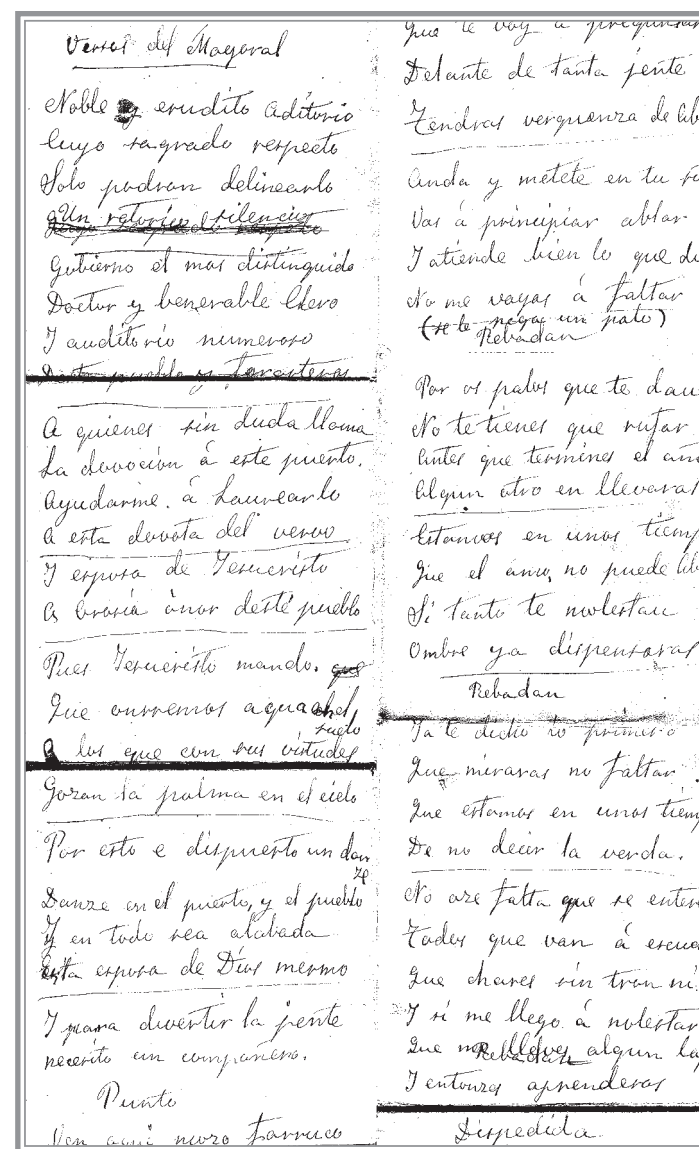 Versos del Mayoral
Noble y erudito Aditorio
Cuyo sagrado respecto
Solo podran delinearlo
Un retorico silencio
Gobierno el mas distinguido
Doctor y benerable Clero
Y auditorio numeroso
pueblo y forasteros
A quienes sin duda llama
La devocion á este puerto.
Ayudarme. á Laurearlo
A esta devota del vervo
Y esposa de Jesucristo
A ónor deste pueblo
Pues Jesucristo mando. que
Que onrremos aqua el
suelo
A los que con sus virtudes
Gozan la palma en el cielo
Por esto e dispuesto un dan
ze
Danze en el puerto, y el pueblo
Y en todo sea alabada
Esta esposa de Dios mesmo
Y para divertir la jente
necesito un compañero.
Punto
Ven aqui mozo farruco
Que te voy a preguntar
Delante de tanta jente
Tendras verguenza de
Anda y metete en tu
Vas á principiar ablar
Y atiende bien lo que
No me vayas á faltar
(se le pega un palo)
Rebadan
Por os palos que te dan
No te tienes que
Antes que termines el
Algun otro en llevaras
Estamos en unos tiem
Que el amo, no puede
Si tanto te molestan
Ombre ya dispensaras
Rebadan
Ya te dicho lo primero
Que miraras no faltar
Que estamos en unos tiem
De no decir la verda.
No aze falta que se
Todos que van á
Que chares sin tron ni
Y si me llego á molestar
Rebadan
Que no lleves algun
Y entonzes aprenderas
Dispedida.